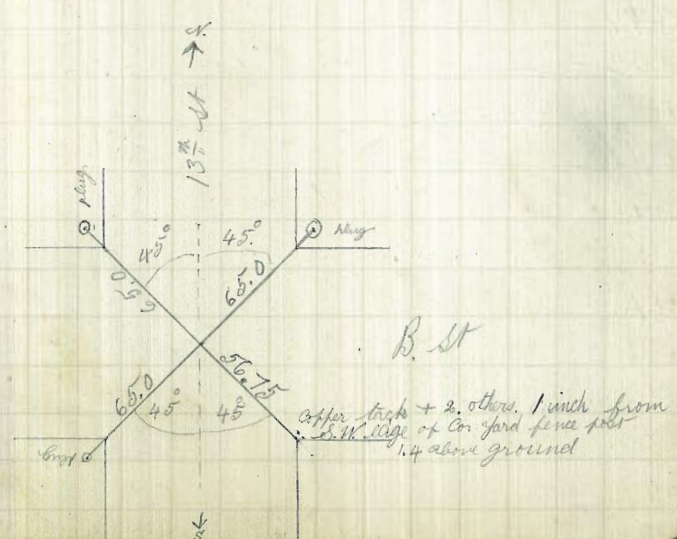 N.
13th St
plug
45.°
45.°
plug
65.0
65.0
B. St
65.0
56.75
45°
45
Copper tack + 2. others. 1 inch from
S.W. edge of Cor Yard fence post
1.4 above ground
plug